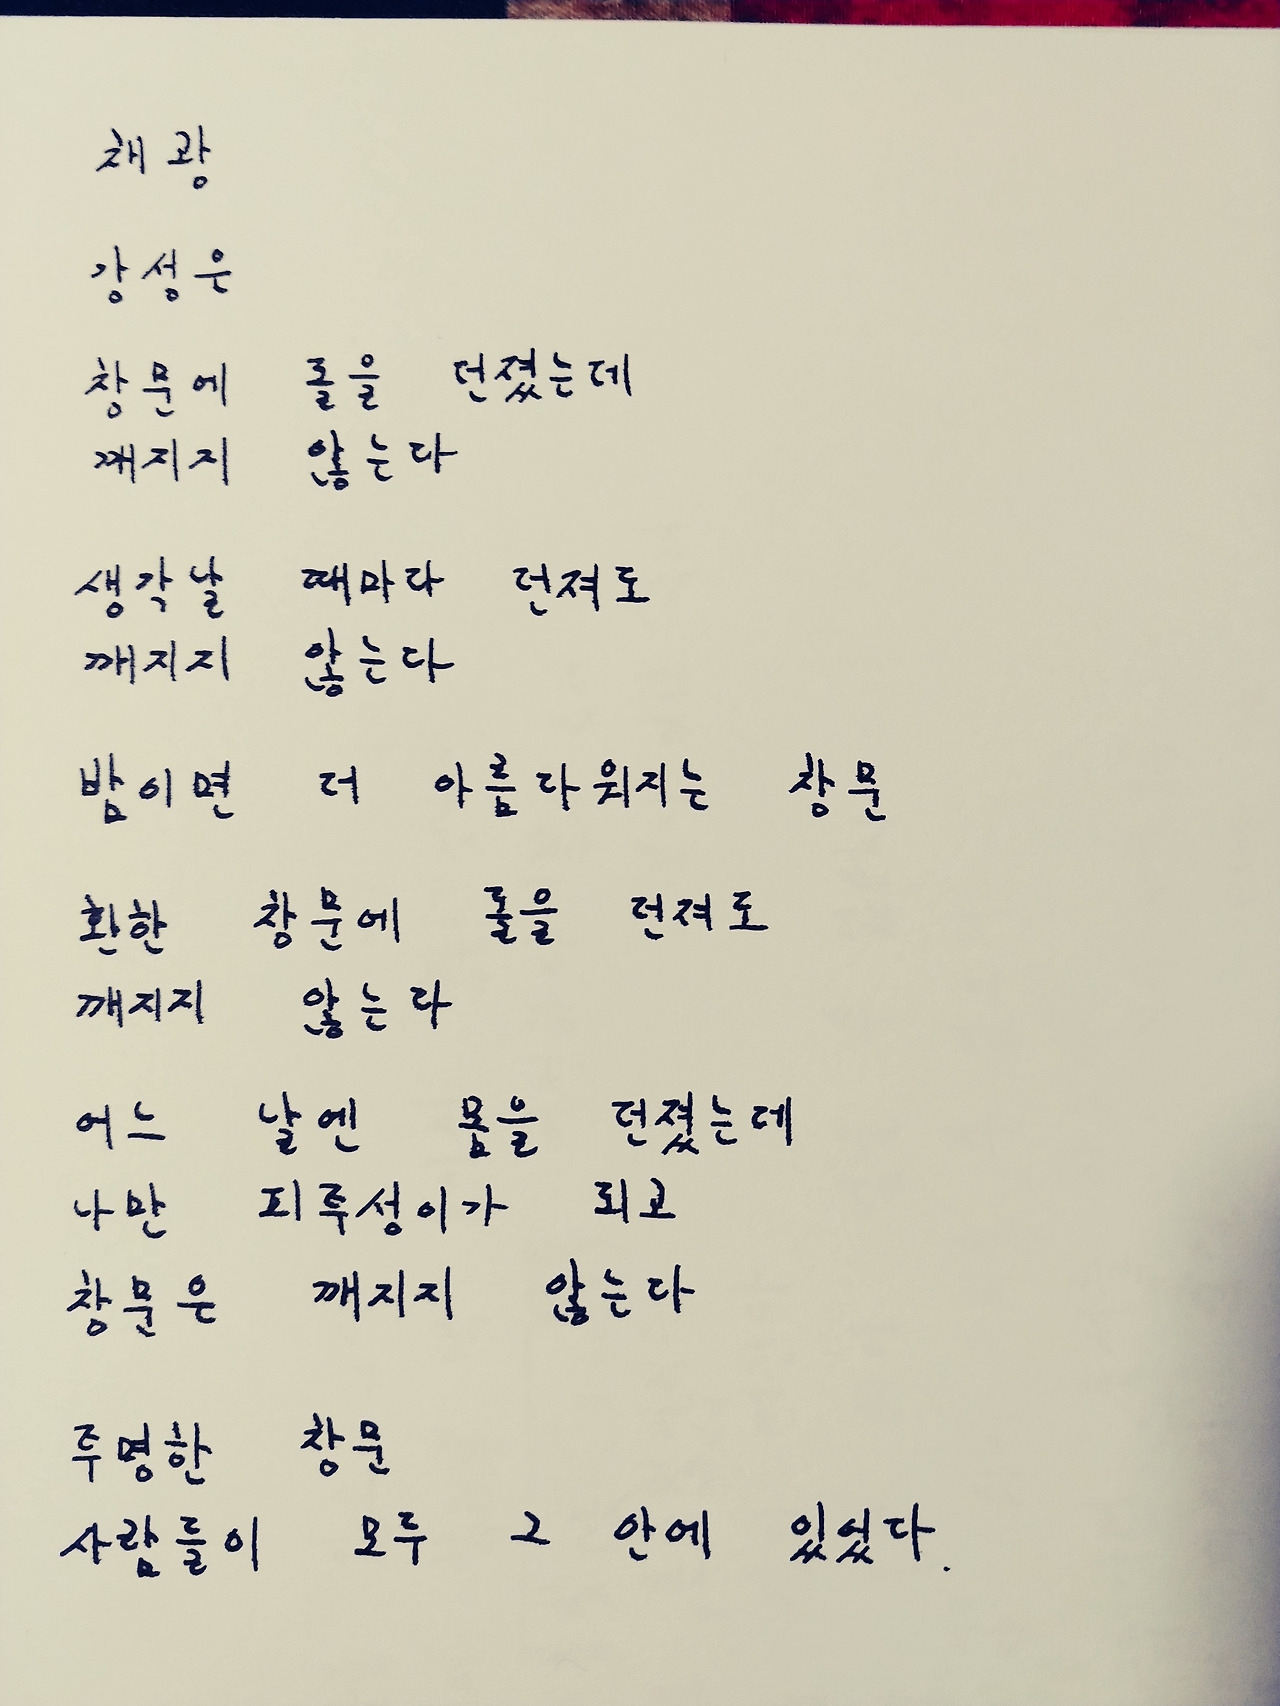 채광
강성은
창문에 돌을 던졌는데
깨지지 않는다
생각날 때마다 던져도
깨지지 않는다
밤이면 더 아름다워지는 창문
환한 창문에 돌을 던져도
깨지지 않는다
어느 날엔 몸을 던졌는데
나만 피투성이가 되고
창문은 깨지지 않는다
투명한 창문
사람들이 모두 그 안에 있었다.